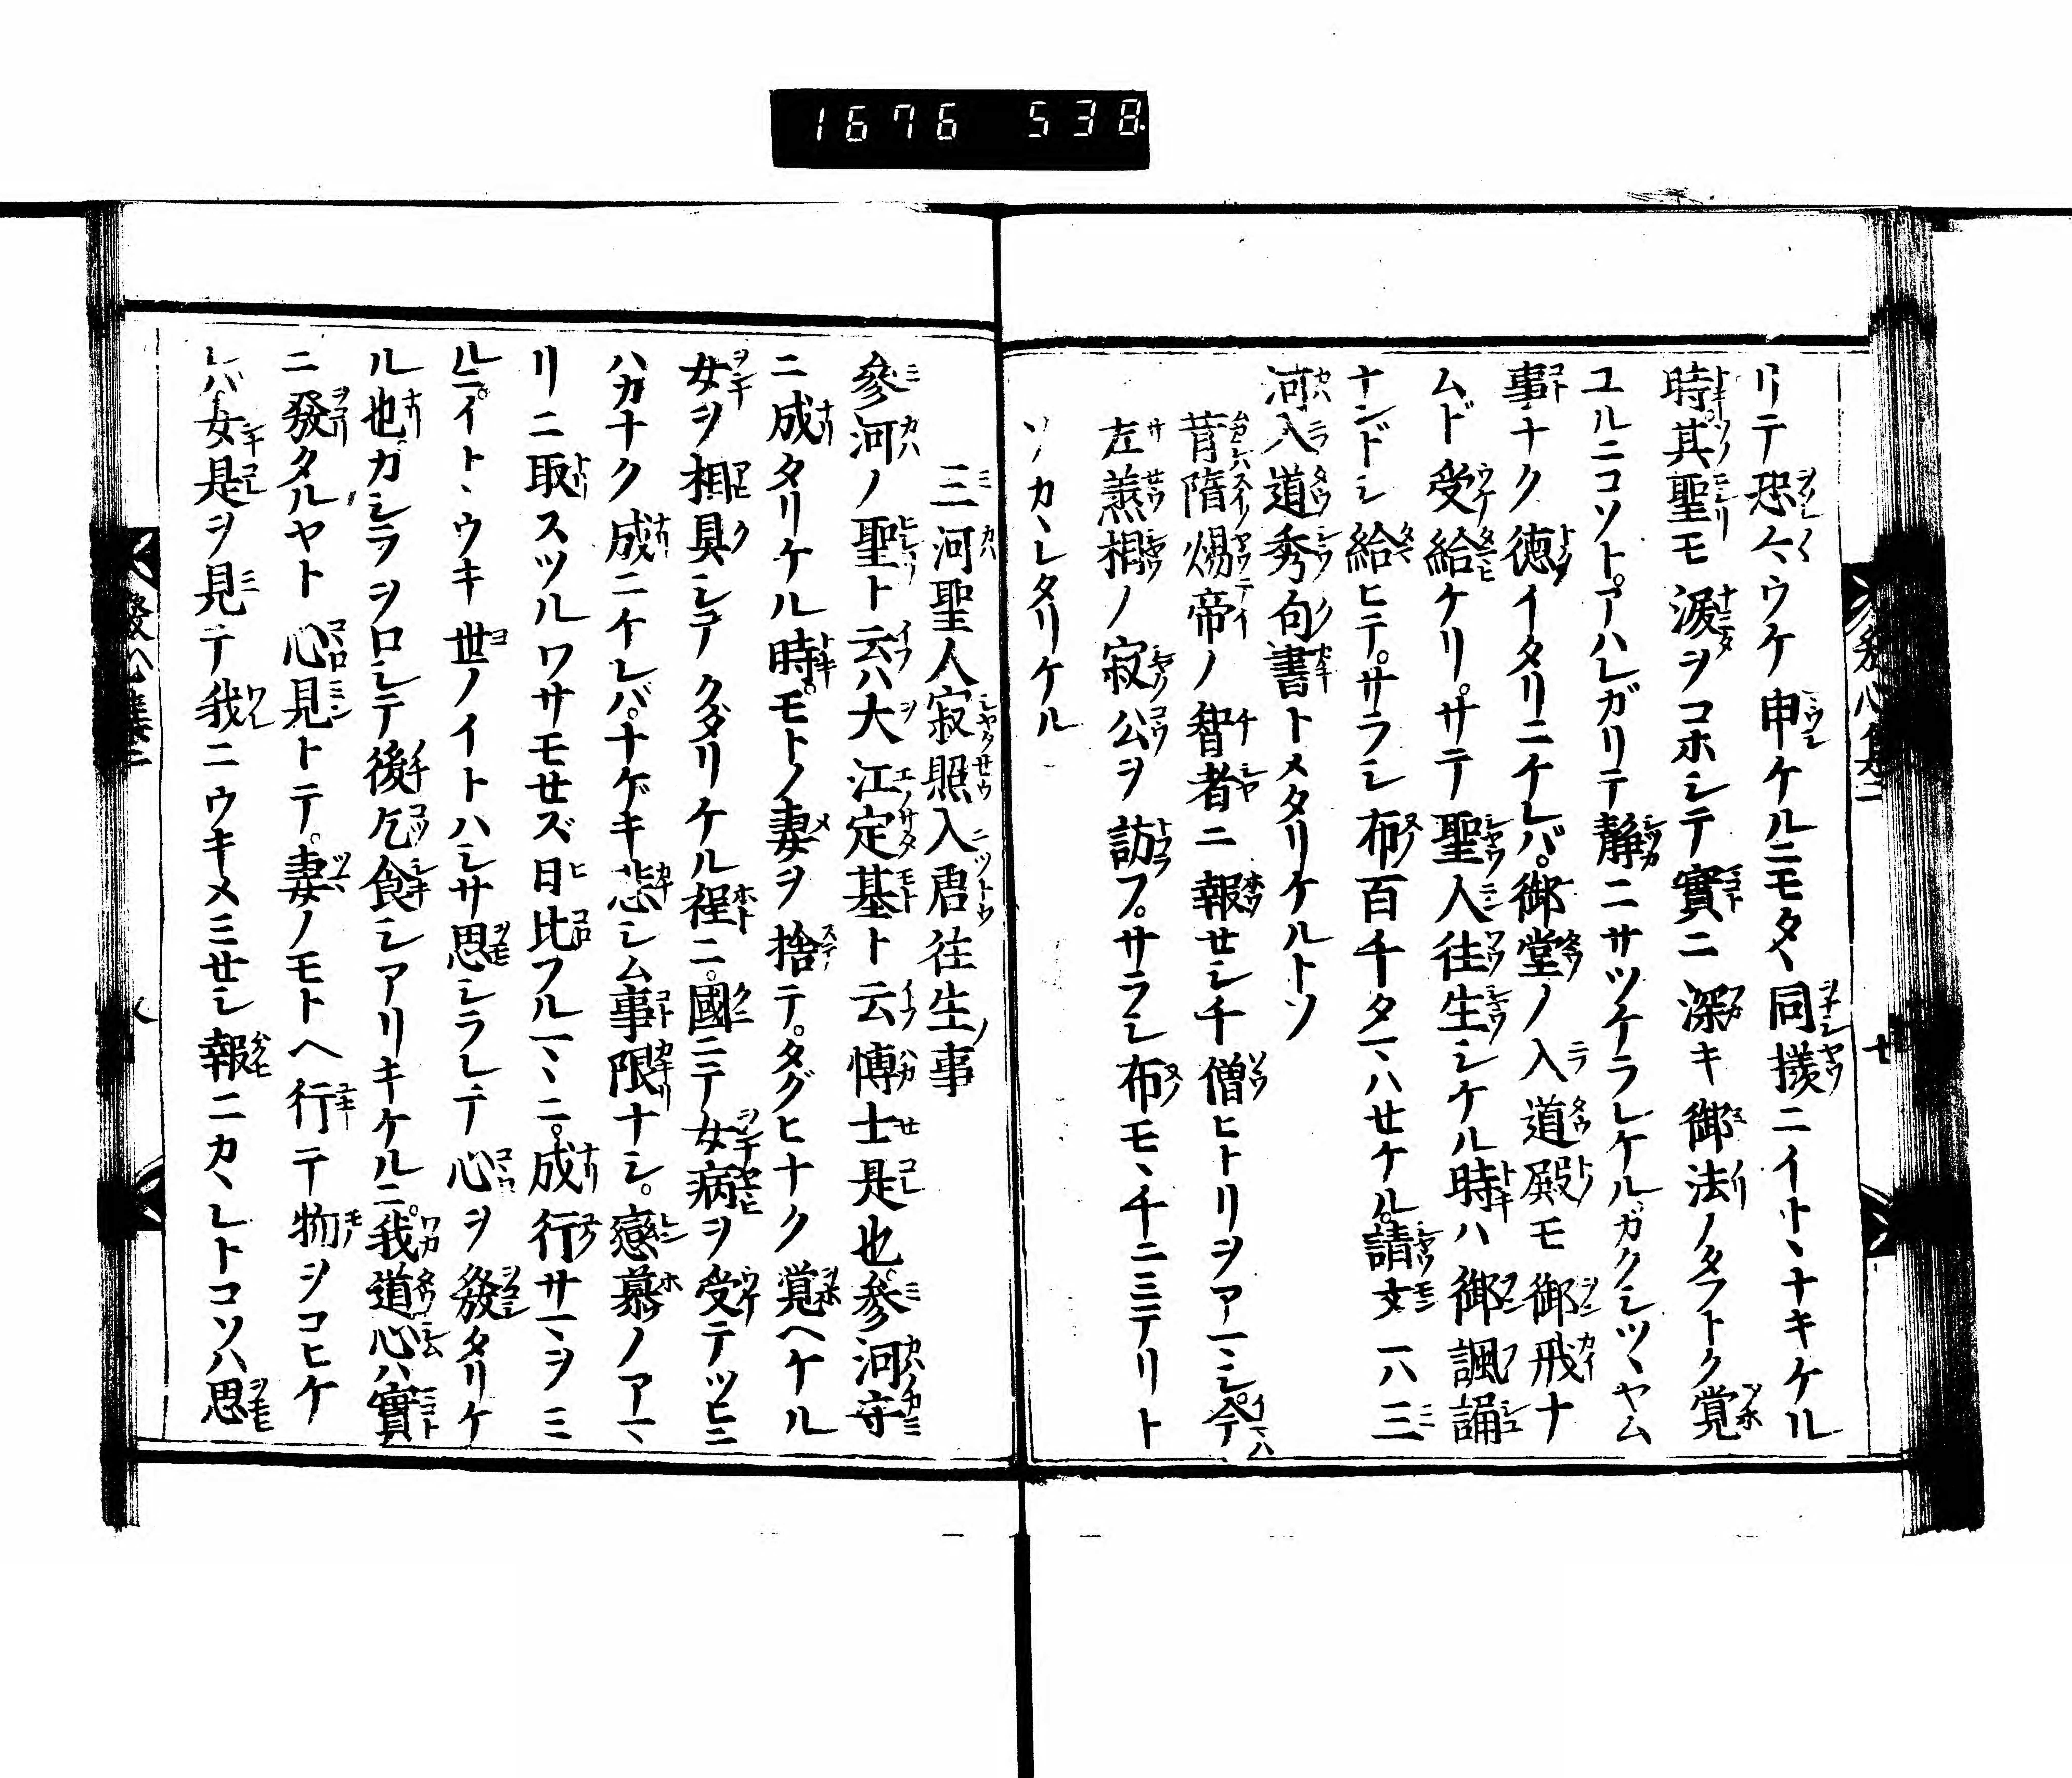 1676 538
リテ恐々ウケ申ケルニモタヽ同様ニイトヽナキケル
時其聖モ涙ヲコホシテ實ニ深キ御法ノタフトク覚
ユルニコソトアハレガリテ静ニサツケラレケルガクシツヽヤム
事ナク徳イタリニケレバ。御堂ノ入道殿モ御戒ナ
ムド受給ケリ。サテ聖人往生シケル時ハ御諷誦
ナンドシ給ヒテ。サラシ布百千タマハセケル。請文ハ三
河入道秀句書トメタリケルトソ
昔隋煬帝ノ智者ニ報セシ千僧ヒトリヲアマシ。今ハ
左羔相ノ寂公ヲ訪フ。サラシ布モヽ千ニミテリト
ソカヽレタリケル
三河聖人寂照入唐往生ノ事
参河ノ聖ト云ハ大江定基ト云博士是也。参河守
ニ成タリケル時。モトノ妻ヲ捨テ。タグヒナク覚ヘケル
女ヲ相具シテクダリケル程ニ。國ニテ女病ヲ受テツヒニ
ハカナク成ニケレバ。ナゲキ悲シム事限ナシ。戀慕ノアマ
リニ取スツルワサモセズ日比フルマヽニ。成行サマヲミ
ルニ。イトヽウキ世ノイトハシサ思シラレテ心ヲ發タリケ
ル也ガシラヲロシテ後乞食シアリキケルニ。我道心ハ實
ニ發タルヤト心見トテ。妻ノモトヘ行テ物ヲコヒケ
レバ女是ヲ見テ我ニウキメミセシ報ニカヽレトコソハ思